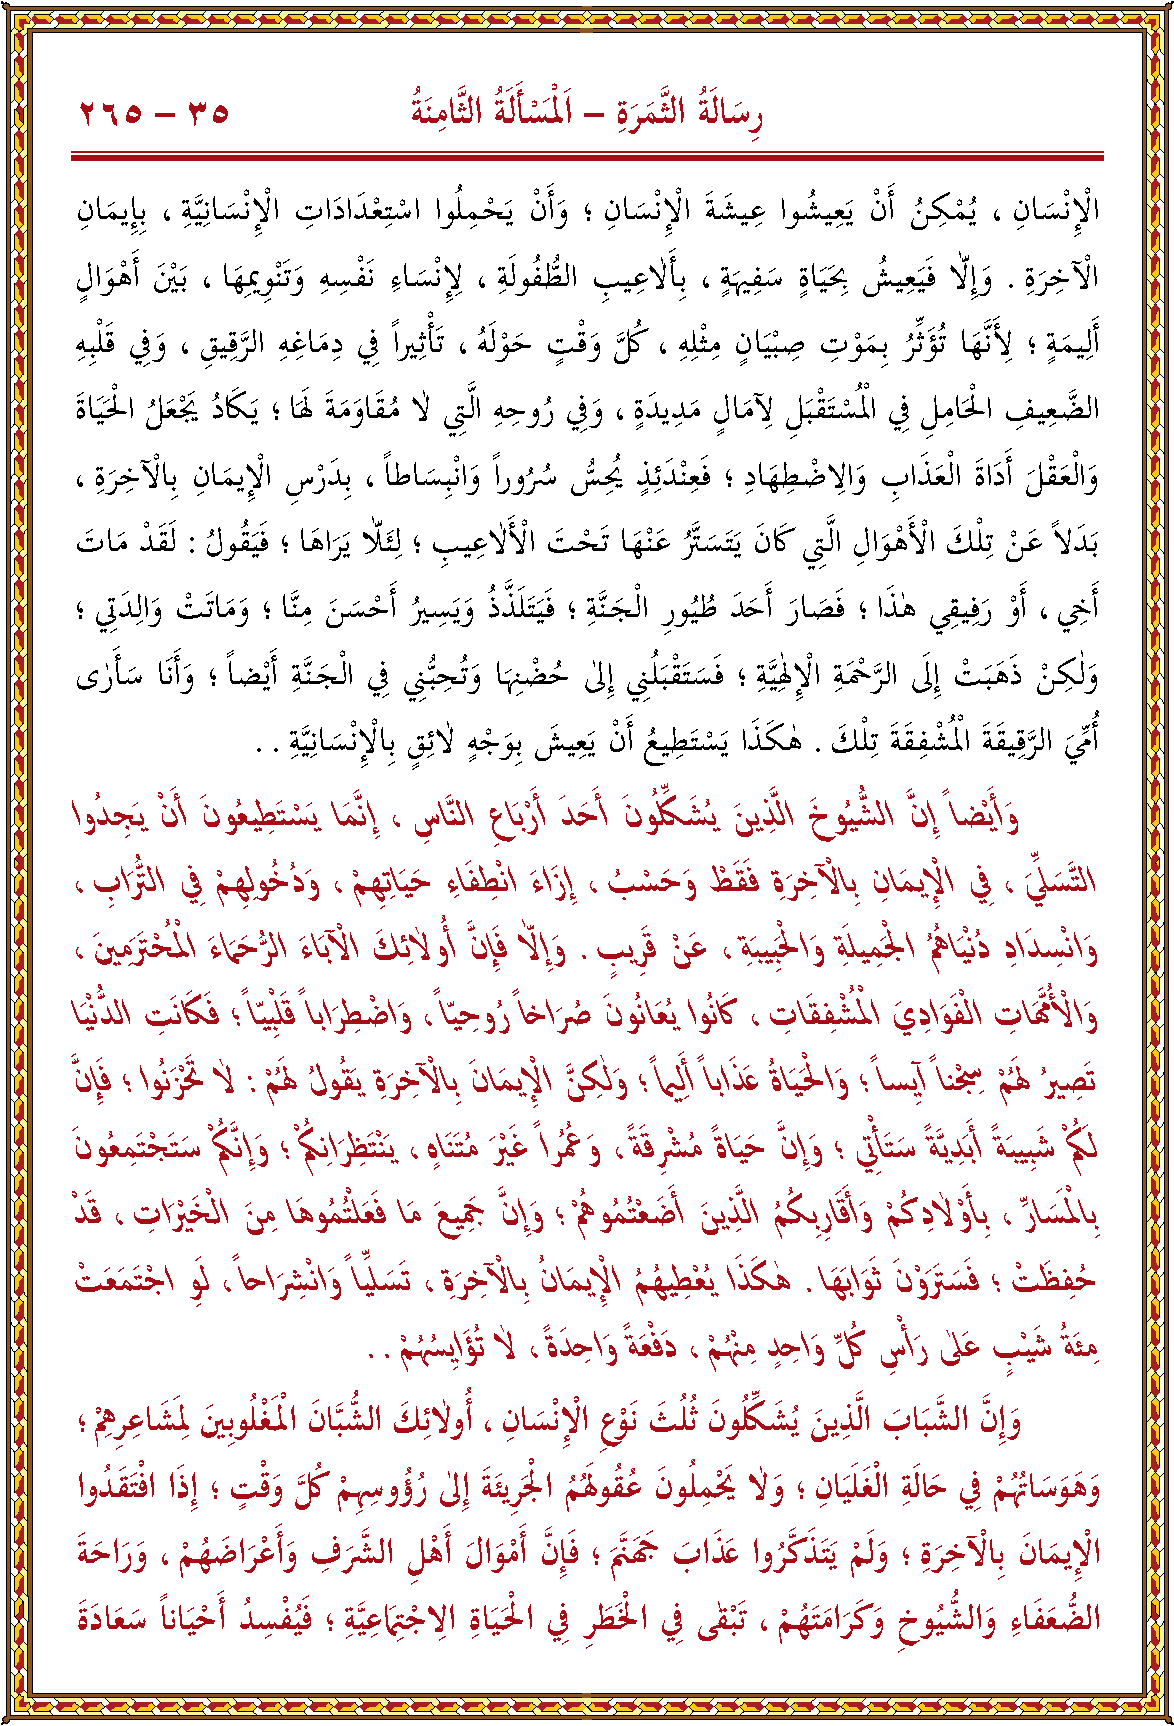 رِسَالَةُ الثَّمَرَةِ – اَلْمَسْأَلَةُ الثَّامِنَةُ ٣٥ – ٢٦٥
الْإِنْسَانِ ، يُمْكِنُ أَنْ يَعِيشُوا عِيشَةَ الْإِنْسَانِ ؛ وَأَنْ يَحْمِلُوا اسْتِعْدَادَاتِ الْإِنْسَانِيَّةِ ، بِإِيمَانِ
الْآخِرَةِ . وَإِلَّا فَيَعِيشُ بِحَيَاةٍ سَفِيهَةٍ ، بِأَلَاعِيبِ الطُّفُولَةِ ، لِإِنْسَاءِ نَفْسِهِ وَتَنْوِيمِهَا ، بَيْنَ أَهْوَالٍ
أَلِيمَةٍ ؛ لِأَنَّهَا تُؤَثِّرُ بِمَوْتِ صِبْيَانٍ مِثْلِهِ ، كُلَّ وَقْتٍ حَوْلَهُ ، تَأْثِيراً فِي دِمَاغِهِ الرَّقِيقِ ، وَفِي قَلْبِهِ
الضَّعِيفِ الْحَامِلِ فِي الْمُسْتَقْبَلِ لِآمَالٍ مَدِيدَةٍ ، وَفِي رُوحِهِ الَّتِي لَا مُقَاوَمَةَ لَهَا ؛ يَكَادُ يَجْعَلُ الْحَيَاةَ
وَالْعَقْلَ أَدَاةَ الْعَذَابِ وَالِاضْطِهَادِ ؛ فَعِنْدَئِذٍ يُحِسُّ سُرُوراً وَانْبِسَاطاً ، بِدَرْسِ الْإِيمَانِ بِالْآخِرَةِ ،
بَدَلاً عَنْ تِلْكَ الْأَهْوَالِ الَّتِي كَانَ يَتَسَتَّرُ عَنْهَا تَحْتَ الْأَلَاعِيبِ ؛ لِئَلَّا يَرَاهَا ؛ فَيَقُولُ : لَقَدْ مَاتَ
أَخِي ، أَوْ رَفِيقِي هٰذَا ؛ فَصَارَ أَحَدَ طُيُورِ الْجَنَّةِ ؛ فَيَتَلَذَّذُ وَيَسِيرُ أَحْسَنَ مِنَّا ؛ وَمَاتَتْ وَالِدَتِي ؛
وَلٰكِنْ ذَهَبَتْ إِلَى الرَّحْمَةِ الْإِلٰهِيَّةِ ؛ فَسَتَقْبَلُنِي إِلٰى حُضْنِهَا وَتُحِبُّنِي فِي الْجَنَّةِ أَيْضاً ؛ وَأَنَا سَأَرٰى
أُمِّيَ الرَّقِيقَةَ الْمُشْفِقَةَ تِلْكَ . هٰكَذَا يَسْتَطِيعُ أَنْ يَعِيشَ بِوَجْهٍ لَائِقٍ بِالْإِنْسَانِيَّةِ . .
وَأَيْضاً إِنَّ الشُّيُوخَ الَّذِينَ يُشَكِّلُونَ أَحَدَ أَرْبَاعِ النَّاسِ ، إِنَّمَا يَسْتَطِيعُونَ أَنْ يَجِدُوا
التَّسَلِّيَ ، فِي الْإِيمَانِ بِالْآخِرَةِ فَقَطْ وَحَسْبُ ، إِزَاءَ انْطِفَاءِ حَيَاتِهِمْ ، وَدُخُولِهِمْ فِي التُّرَابِ ،
وَانْسِدَادِ دُنْيَاهُمُ الْجَمِيلَةِ وَالْحَبِيبَةِ ، عَنْ قَرِيبٍ . وَإِلَّا فَإِنَّ أُولَائِكَ الْآبَاءَ الرُّحَمَاءَ الْمُحْتَرَمِينَ ،
وَالْأُمَّهَاتِ الْفَوَادِيَ الْمُشْفِقَاتِ ، كَانُوا يُعَانُونَ صُرَاخاً رُوحِيّاً ، وَاضْطِرَاباً قَلْبِيّاً ؛ فَكَانَتِ الدُّنْيَا
تَصِيرُ لَهُمْ سِجْناً آيِساً ؛ وَالْحَيَاةُ عَذَاباً أَلِيماً ؛ وَلٰكِنَّ الْإِيمَانَ بِالْآخِرَةِ يَقُولُ لَهُمْ : لَا تَحْزَنُوا ؛ فَإِنَّ
لَكُمْ شَبِيبَةً أَبَدِيَّةً سَتَأْتِي ؛ وَإِنَّ حَيَاةً مُشْرِقَةً ، وَعُمْراً غَيْرَ مُتَنَاهٍ ، يَنْتَظِرَانِكُمْ ؛ وَإِنَّكُمْ سَتَجْتَمِعُونَ
بِالْمَسَارِّ ، بِأَوْلَادِكُمْ وَأَقَارِبِكُمُ الَّذِينَ أَضَعْتُمُوهُمْ ؛ وَإِنَّ جَمِيعَ مَا فَعَلْتُمُوهَا مِنَ الْخَيْرَاتِ ، قَدْ
حُفِظَتْ ؛ فَسَتَرَوْنَ ثَوَابَهَا . هٰكَذَا يُعْطِيهُمُ الْإِيمَانُ بِالْآخِرَةِ ، تَسَلِّياً وَانْشِرَاحاً ، لَوِ اجْتَمَعَتْ
مِئَةُ شَيْبٍ عَلٰى رَأْسِ كُلِّ وَاحِدٍ مِنْهُمْ ، دَفْعَةً وَاحِدَةً ، لَا تُؤَايِسُهُمْ . .
وَإِنَّ الشَّبَابَ الَّذِينَ يُشَكِّلُونَ ثُلُثَ نَوْعِ الْإِنْسَانِ ، أُولَائِكَ الشُّبَّانَ الْمَغْلُوبِينَ لِمَشَاعِرِهِمْ ؛
وَهَوَسَاتُهُمْ فِي حَالَةِ الْغَلَيَانِ ؛ وَلَا يَحْمِلُونَ عُقُولَهُمُ الْجَرِيئَةَ إِلٰى رُؤُوسِهِمْ كُلَّ وَقْتٍ ؛ إِذَا افْتَقَدُوا
الْإِيمَانَ بِالْآخِرَةِ ؛ وَلَمْ يَتَذَكَّرُوا عَذَابَ جَهَنَّمَ ؛ فَإِنَّ أَمْوَالَ أَهْلِ الشَّرَفِ وَأَعْرَاضَهُمْ ، وَرَاحَةَ
الضُّعَفَاءِ وَالشُّيُوخِ وَكَرَامَتَهُمْ ، تَبْقٰى فِي الْخَطَرِ فِي الْحَيَاةِ الِاجْتِمَاعِيَّةِ ؛ فَيُفْسِدُ أَحْيَاناً سَعَادَةَ